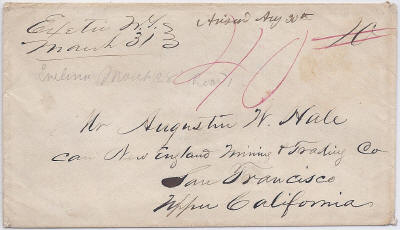 Exeter N.Y.
March 31
Arrived Aug 30th
40
10
Evelina March 28
Mr Augustin W. Hale
care New England Mining & Trading Co
San Francisco
Upper California